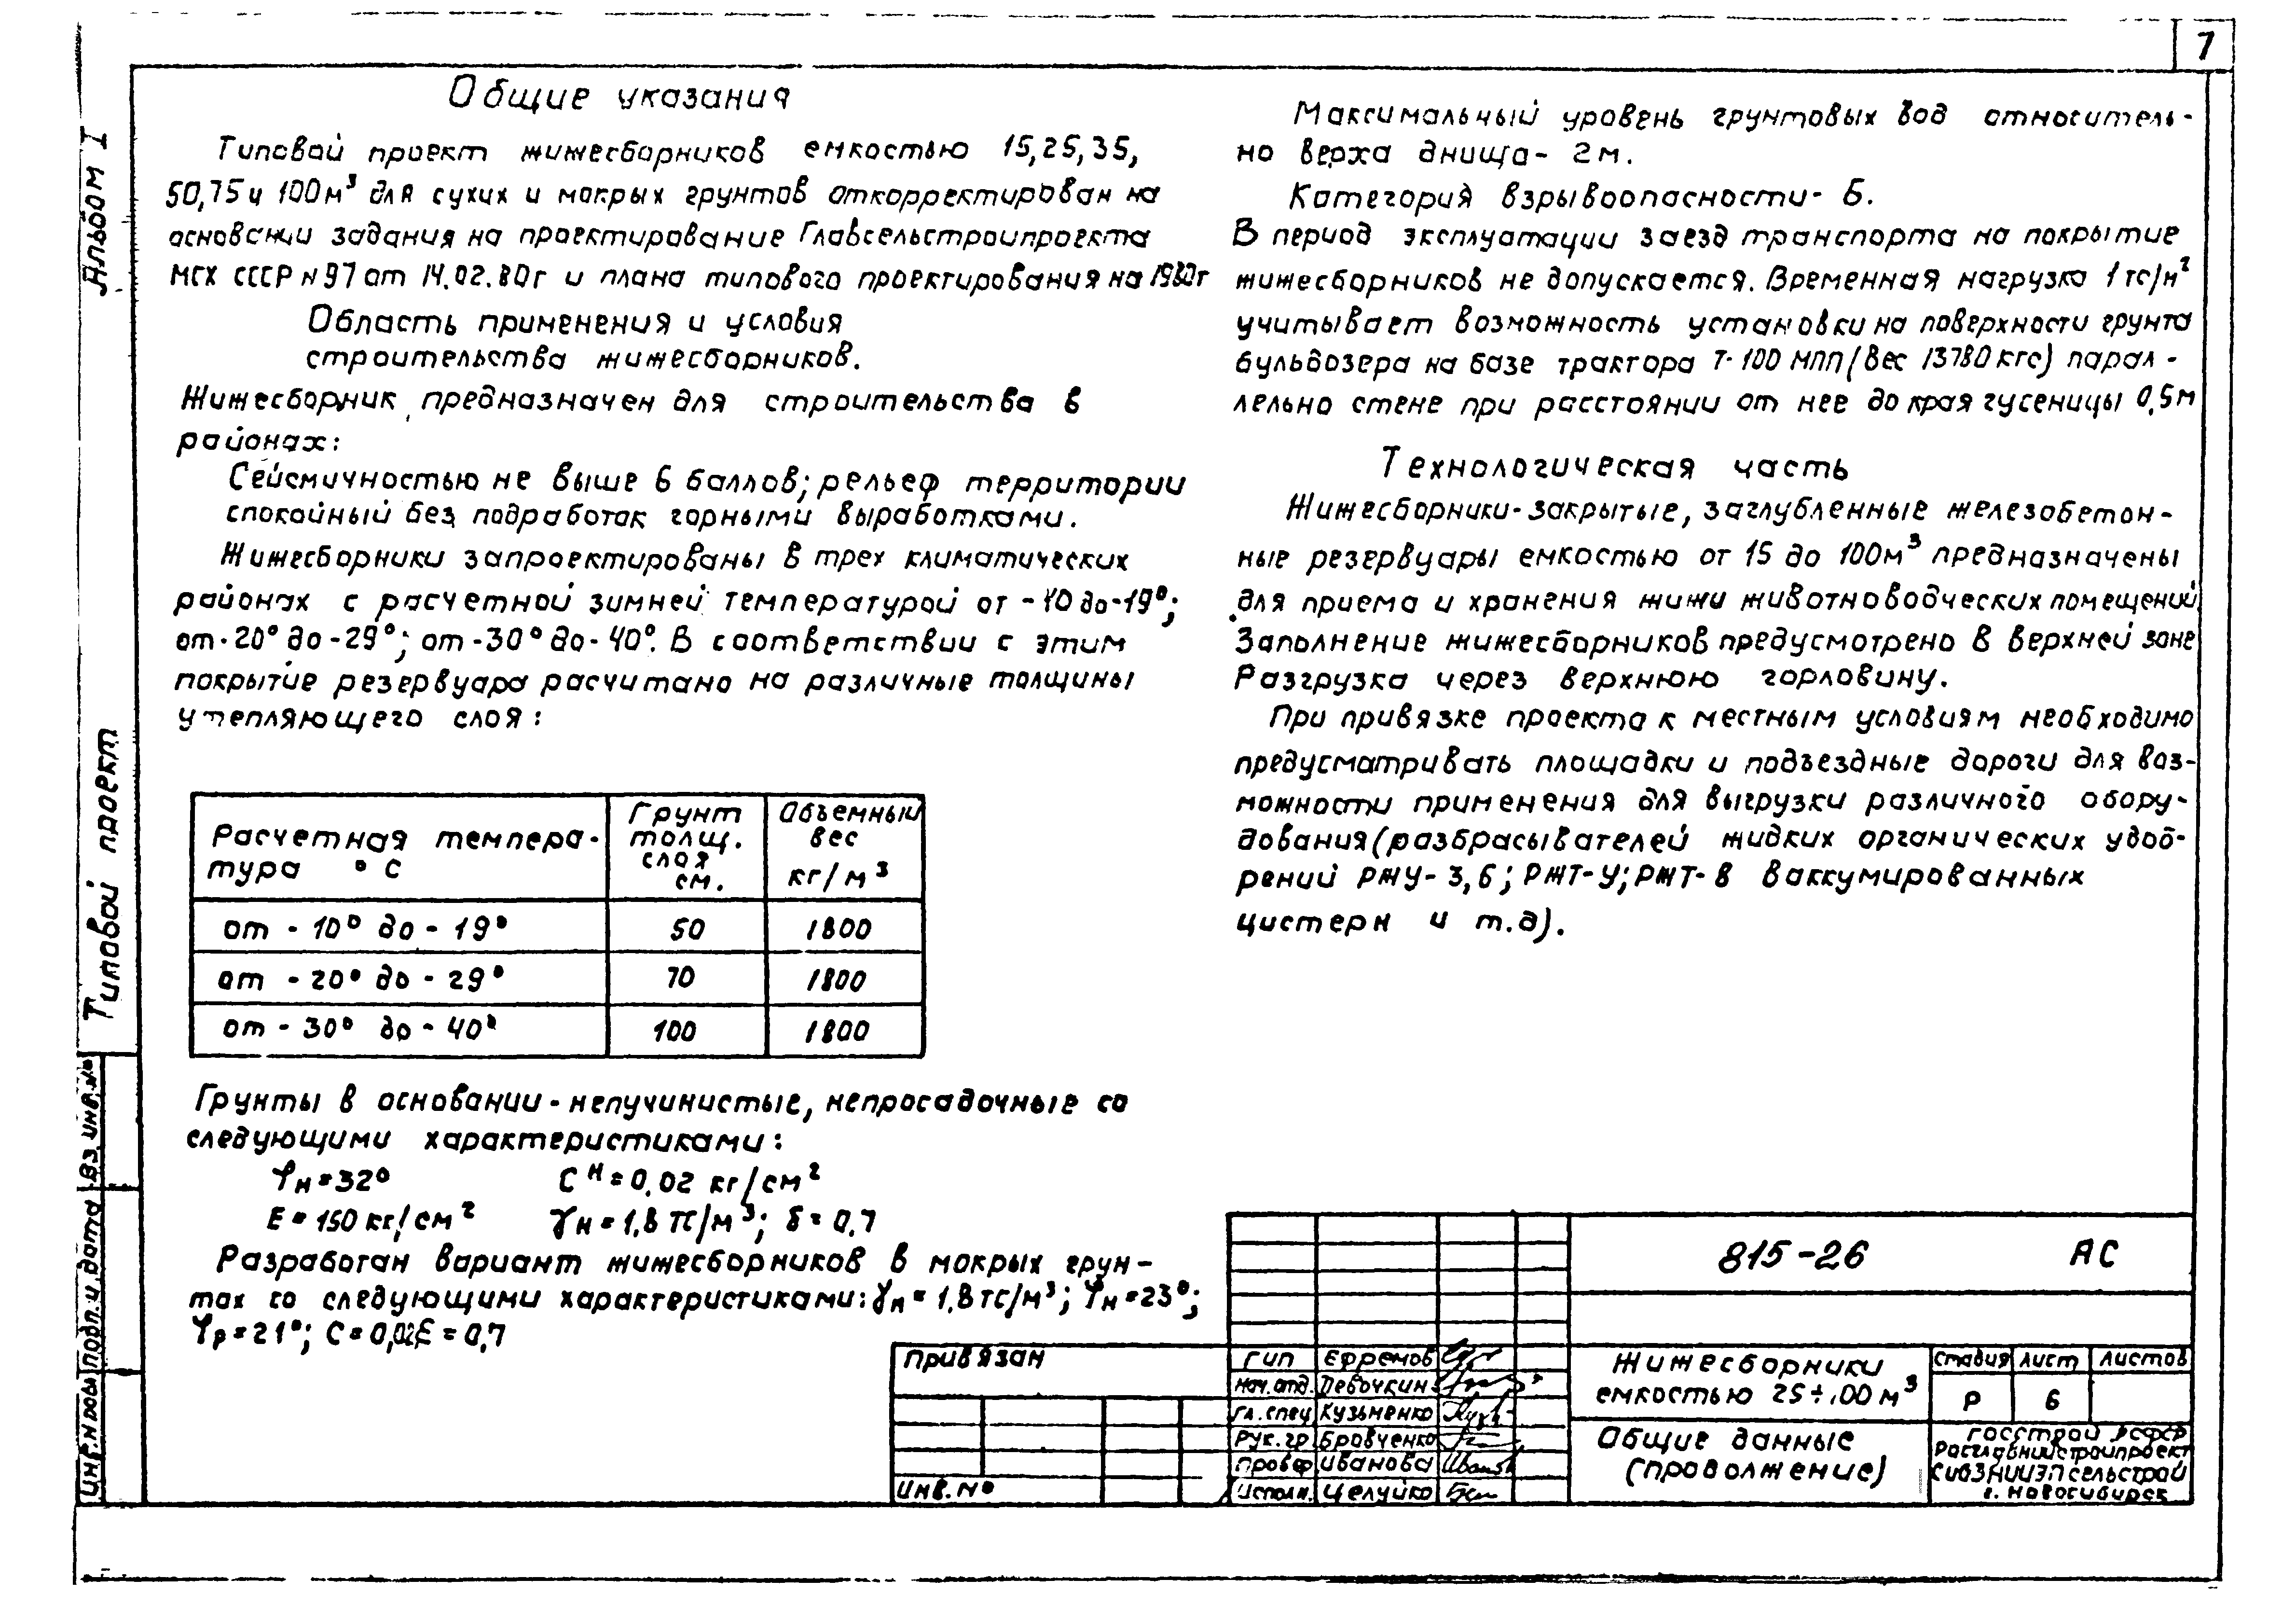 7
Альбом I
Типовой проект
Общие указания
Типовой проект жижесборников емкостью 15,25,35,
50,75 и 100м³ для сухих и мокрых грунтов откорректирован на
основании задания на проектирование Главсельстройпроекта
МСХ СССР N 97 от 14.02.80г и плана типового проектирования на 1980г
Область применения и условия
строительства жижесборников.
Жижесборник предназначен для строительства в
районах:
Сейсмичностью не выше 6 баллов; рельеф территории
спокойный без подработок горными выработками.
Жижесборники запроектированы в трех климатических
районах с расчетной зимней температурой от -10 до -19°;
от -20° до -29°; от -30° до -40°. В соответствии с этим
покрытие резервуара расчитано на различные толщины
утепляющего слоя:
Расчетная темпера-
тура °С
Грунт
толщ.
слоя
см.
Объемный
вес
кг/м³
от - 10° до - 19° 50 1800
от - 20° до - 29° 70 1800
от - 30° до - 40° 100 1800
Грунты в основании - непучинистые, непросадочные со
следующими характеристиками:
φн = 32° Cн = 0,02 кг/см²
E = 150 кг/см² γн = 1,8 тс/м³; δ = 0,7
Разработан вариант жижесборников в мокрых грун-
тах со следующими характеристиками: γн = 1,8 тс/м³; φн = 23°;
φр = 21°; C = 0,02 ε = 0,7
Максимальный уровень грунтовых вод относитель-
но верха днища - 2м.
Категория взрывоопасности - Б.
В период эксплуатации заезд транспорта на покрытие
жижесборников не допускается. Временная нагрузка 1 тс/м²
учитывает возможность установки на поверхности грунта
бульдозера на базе трактора Т-100 МПП (вес 13780 кгс) парал-
лельно стене при расстоянии от нее до края гусеницы 0,5м
Технологическая часть
Жижесборники - закрытые, заглубленные железобетон-
ные резервуары емкостью от 15 до 100м³ предназначены
для приема и хранения жижи животноводческих помещений.
Заполнение жижесборников предусмотрено в верхней зоне
Разгрузка через верхнюю горловину.
При привязке проекта к местным условиям необходимо
предусматривать площадки и подъездные дороги для воз-
можности применения для выгрузки различного обору-
дования (разбрасывателей жидких органических удоб-
рений РЖУ - 3,6; РЖТ-У; РЖТ-8 ваккумированных
цистерн и т.д).
815-26 АС
Привязан
Инв. №
ГИП Ефремов
Нач. отд. Девочкин
Гл. спец Кузьменко
Рук. гр Бровченко
Провер Иванова
Исполн. Целуйко
Жижесборники
емкостью 25÷100 м³
Стадия Лист Листов
Р 6
Общие данные
(продолжение)
Госстрой РСФСР
Росглавниистройпроект
СибЗНИИЭПсельстрой
г. Новосибирск
Инв. N подл Подп. и дата Вз. инв. №